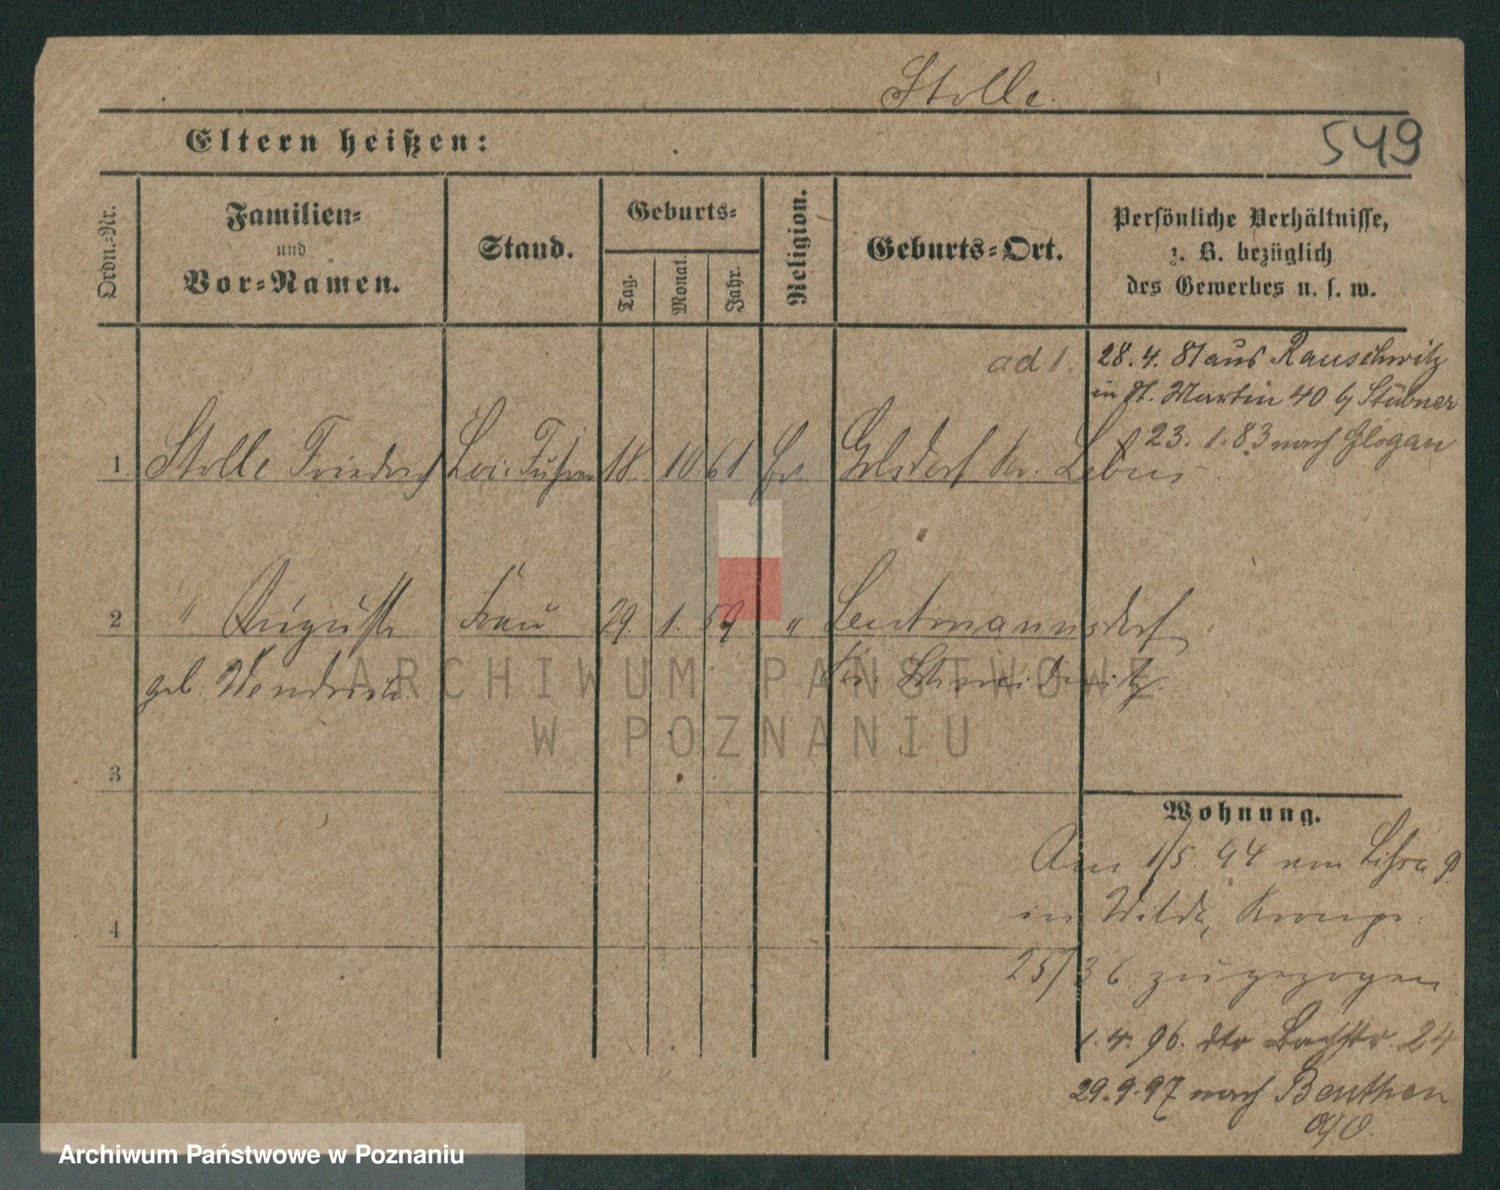 Stolle.
Eltern heißen:
549
Ordn.-Nr.
Familien-
und
Vor-Namen.
Stand.
Geburts-
Tag.
Monat.
Jahr.
Religion.
Geburts-Ort.
Persönliche Verhältnisse,
z. B. bezüglich
des Gewerbes u. s. w.
ad 1. 28. 4. 81 aus Rauschwitz
in St. Martin 40 b/ Stübner
23. 1. 83 nach Glogau
1. Stolle Friedrich 18. 10 61 Ev. Kr. Lebus
2 " Auguste Frau 29. 1. 59 " Leutmannsdorf
geb. Kr. Schweidnitz.
3
Wohnung.
Am 1/5. 94
in Wilda, Kronpr.
4
25/36 zugezogen
1. 4. 96. dto Bachstr 24
29. 9. 97 nach Beuthen
a/O.
ARCHIWUM PAŃSTWOWE
W POZNANIU
Archiwum Państwowe w Poznaniu